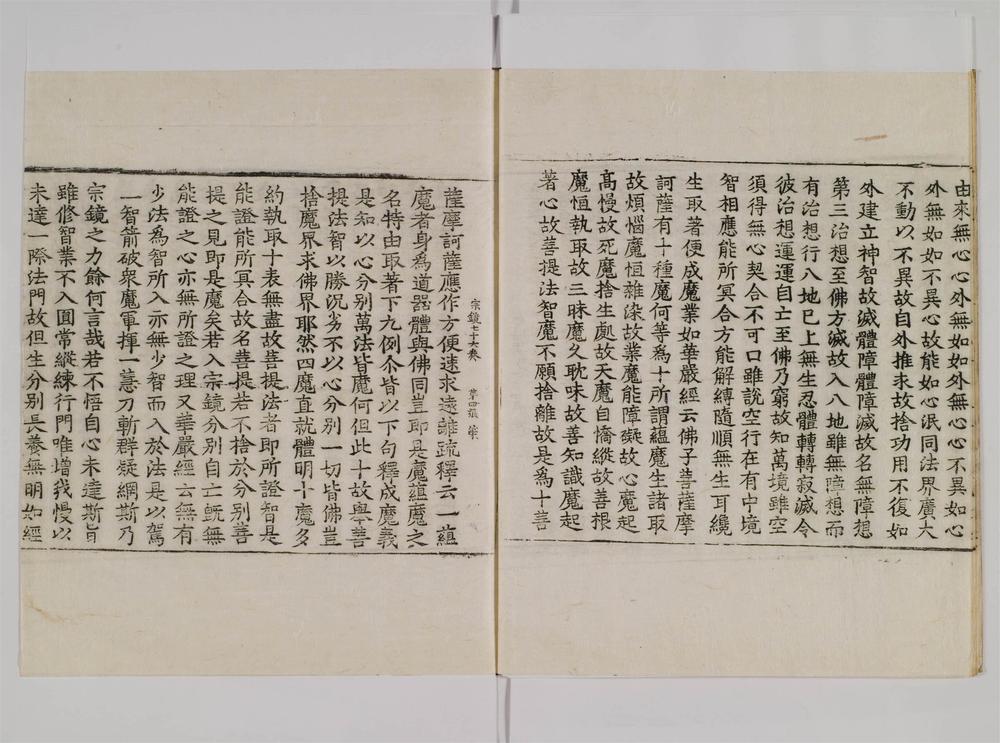 由來無心心外無如如外無心心不異如心
外無如如不異心故能如心泯同法界廣大
不動以不異故自外推求故捨功用不復如
外建立神智故滅體障體障滅故名無障想
第三治想至佛方滅故入八地雖無障想而
有治想行八地已上無生忍體轉轉寂滅令
彼治想運運自亡至佛乃窮故知萬境雖空
須得無心契合不可口雖說空行在有中境
智相應能所冥合方能解縛隨順無生耳纔
生取著便成魔業如華嚴經云佛子菩薩摩
訶薩有十種魔何等爲十所謂蘊魔生諸取
故煩惱魔恒雜染故業魔能障礙故心魔起
高慢故死魔捨生處故天魔自憍縱故善根
魔恒執取故三昧魔久耽味故善知識魔起
著心故菩提法智魔不願捨離故是爲十菩
宗鏡七十六卷 第四張 䇿
薩摩訶薩應作方便速求遠離疏釋云一蘊
魔者身爲道器體與佛同豈即是魔蘊魔之
名特由取著下九例介皆以下句釋成魔義
是知以心分別萬法皆魔何但此十故舉菩
提法智以勝況劣不以心分別一切皆佛豈
捨魔界求佛界耶然四魔直就體明十魔多
約執取十表無盡故菩提法者即所證智是
能證能所冥合故名菩提若不捨於分別菩
提之見即是魔矣若入宗鏡分別自亡旣無
能證之心亦無所證之理又華嚴經云無有
少法爲智所入亦無少智而入於法是以駕
一智箭破衆魔軍揮一慧刀斬群疑網斯乃
宗鏡之力餘何言哉若不悟自心未達斯旨
雖修智業不入圓常縱練行門唯增我慢以
未達一際法門故但生分別長養無明如經